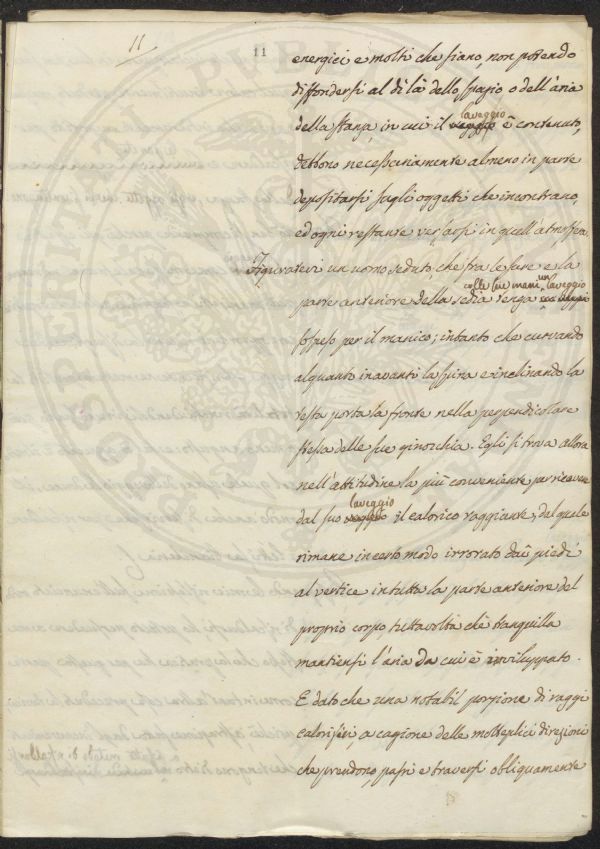 11
11
energici e molti che siano non potendo
diffondersi al di là dello spazio o dell'aria
laveggio
della stanza, in cui il veggio è contenuto,
debbono necessariamente almeno in parte
depositarsi sugli oggetti che incontrano,
ed ogni restante versarsi in quell'atmosfera
Figuratevi un uomo seduto, che fra le sure e la
colle sue mani un laveggio
parte anteriore della sedia tenga
sospeso per il manico; intanto che curvando
alquanto inavanti la spina e inclinando la
testa porta la fronte nella perpendicolare
stessa delle sue ginocchia. Egli si trova allora
nell'attitudine la più conveniente per ricavare
laveggio
dal suo veggio il calorico raggiante, dal quale
rimane in certo modo irrorato dai piedi
al vertice in tutta la parte anteriore del
proprio corpo tuttavolta chè tranquilla
mantiensi l'aria da cui è inviluppato.
E dato che una notabil porzione di raggi
caloriferi, a cagione delle molteplici direzioni
che prendono, passi e traversi obliquamente
PROSPERITATI PUBL